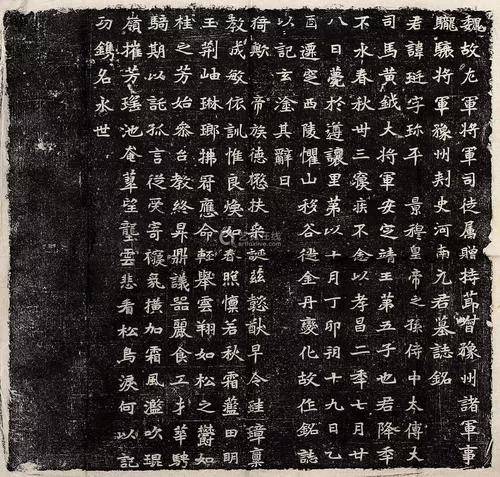 魏故龙軍將軍司徒属贈持節督豫州諸軍事
龍驤將軍豫州刾史河南元君墓誌銘
君諱珽字珎平 景穆皇帝之孫侍中太傅大
司馬黄鉞大將軍安定靖王第五子也君降秊
不永春秋卅三寢疾不悆以孝昌二秊七月廿
八日薨於遵讓里第以十月丁卯朔十九日乙
酉遷窆西陵懼山移谷徙金丹變化故作銘誌
以記玄塗其辭曰
猗歟 帝族德懋扶桒誕兹懿猷早令珪璋稟
教成敏依訓惟良煥如春煦懍若秋霜藍田明
玉荆岫琳瑯拂衿應命輕舉雲翔如松之鬱如
桂之芳始叅台教終昇鼎議器麗食工才華騁
騎期以託孤言從受寄穠氛橫加霜風濫吹琨
嶺摧芳瑤池奄萃望壟雲悲看松鳥淚何以記
功鐫名永世